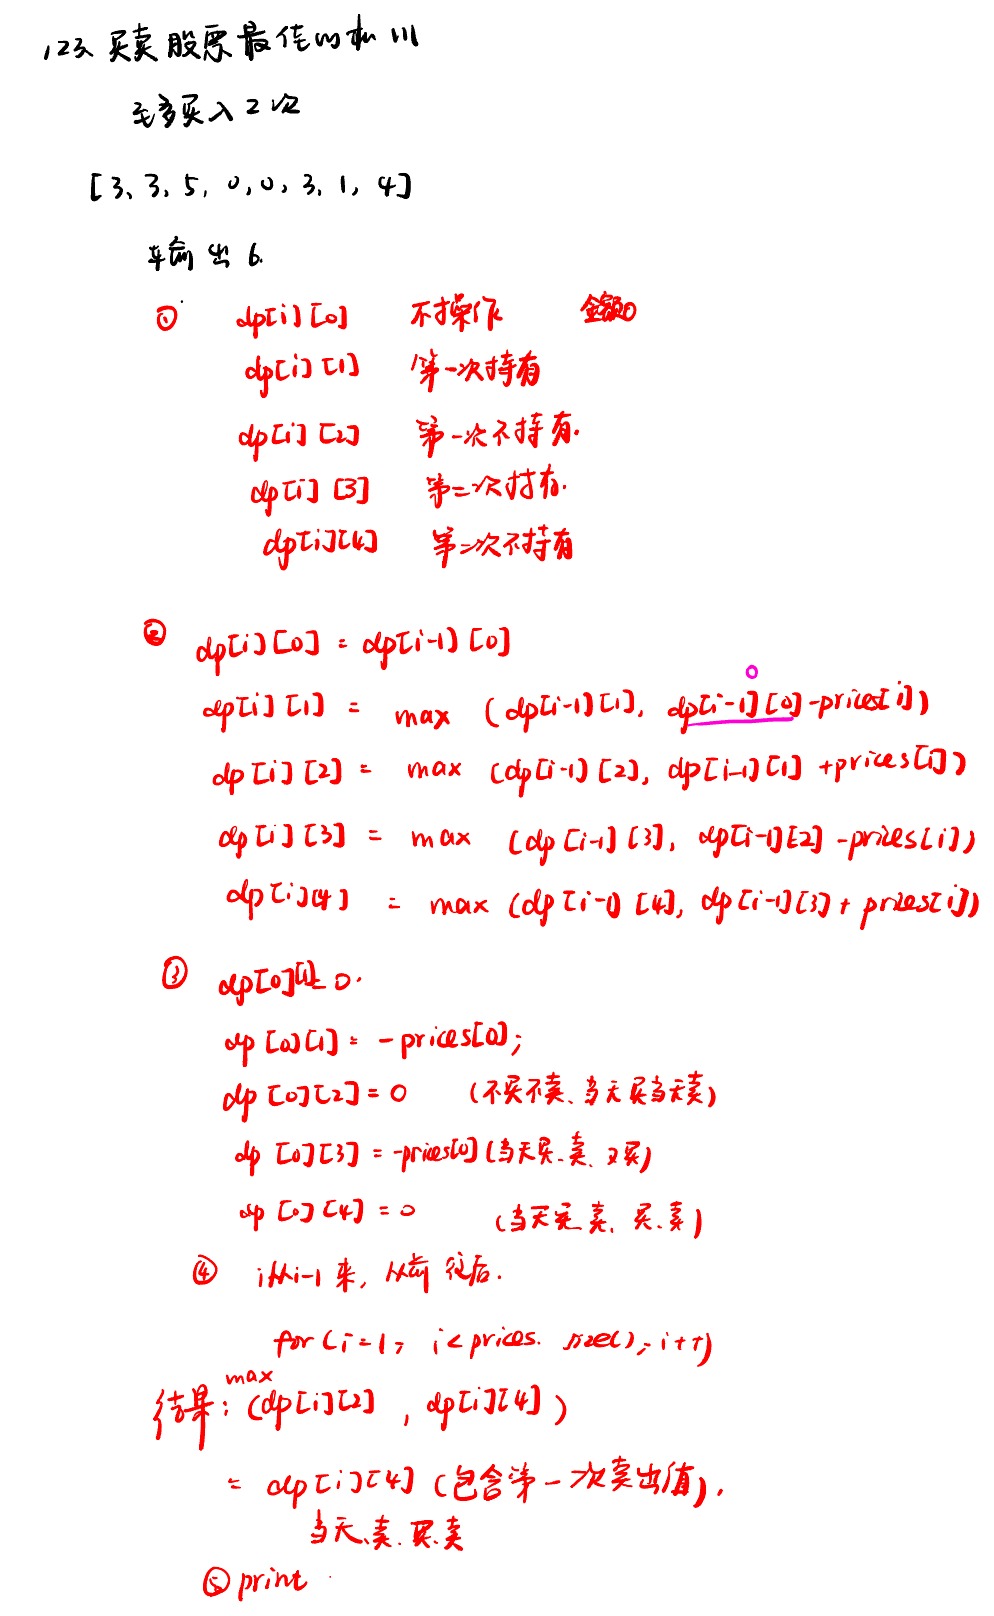 123、买卖股票最佳时机 III
至多买入2次
[3、3、5, 0,0, 3, 1, 4]
输出6.
① dp[i][0] 不操作 金额0
dp[i][1] 第一次持有
dp[i][2] 第一次不持有.
dp[i][3] 第二次持有.
dp[i][4] 第二次不持有
② dp[i][0] = dp[i-1][0]
0
dp[i][1] = max (dp[i-1][1], dp[i-1][0]-prices[i])
dp[i][2] = max (dp[i-1][2], dp[i-1][1]+prices[i])
dp[i][3] = max (dp[i-1][3], dp[i-1][2]-prices[i])
dp[i][4] = max (dp[i-1][4], dp[i-1][3]+prices[i])
③ dp[0] = 0.
dp[0][1] = -prices[0];
dp[0][2] = 0 (不买不卖、当天买当天卖)
dp[0][3] = -prices[0] (当天买、卖、又买)
dp[0][4] = 0 (当天买、卖、买、卖)
④ i从i-1来, 从前往后.
for(i=1; i<prices.size(); i++)
结果: max(dp[i][2], dp[i][4])
= dp[i][4] (包含第一次卖出值).
当天、卖、买、卖
⑤ print